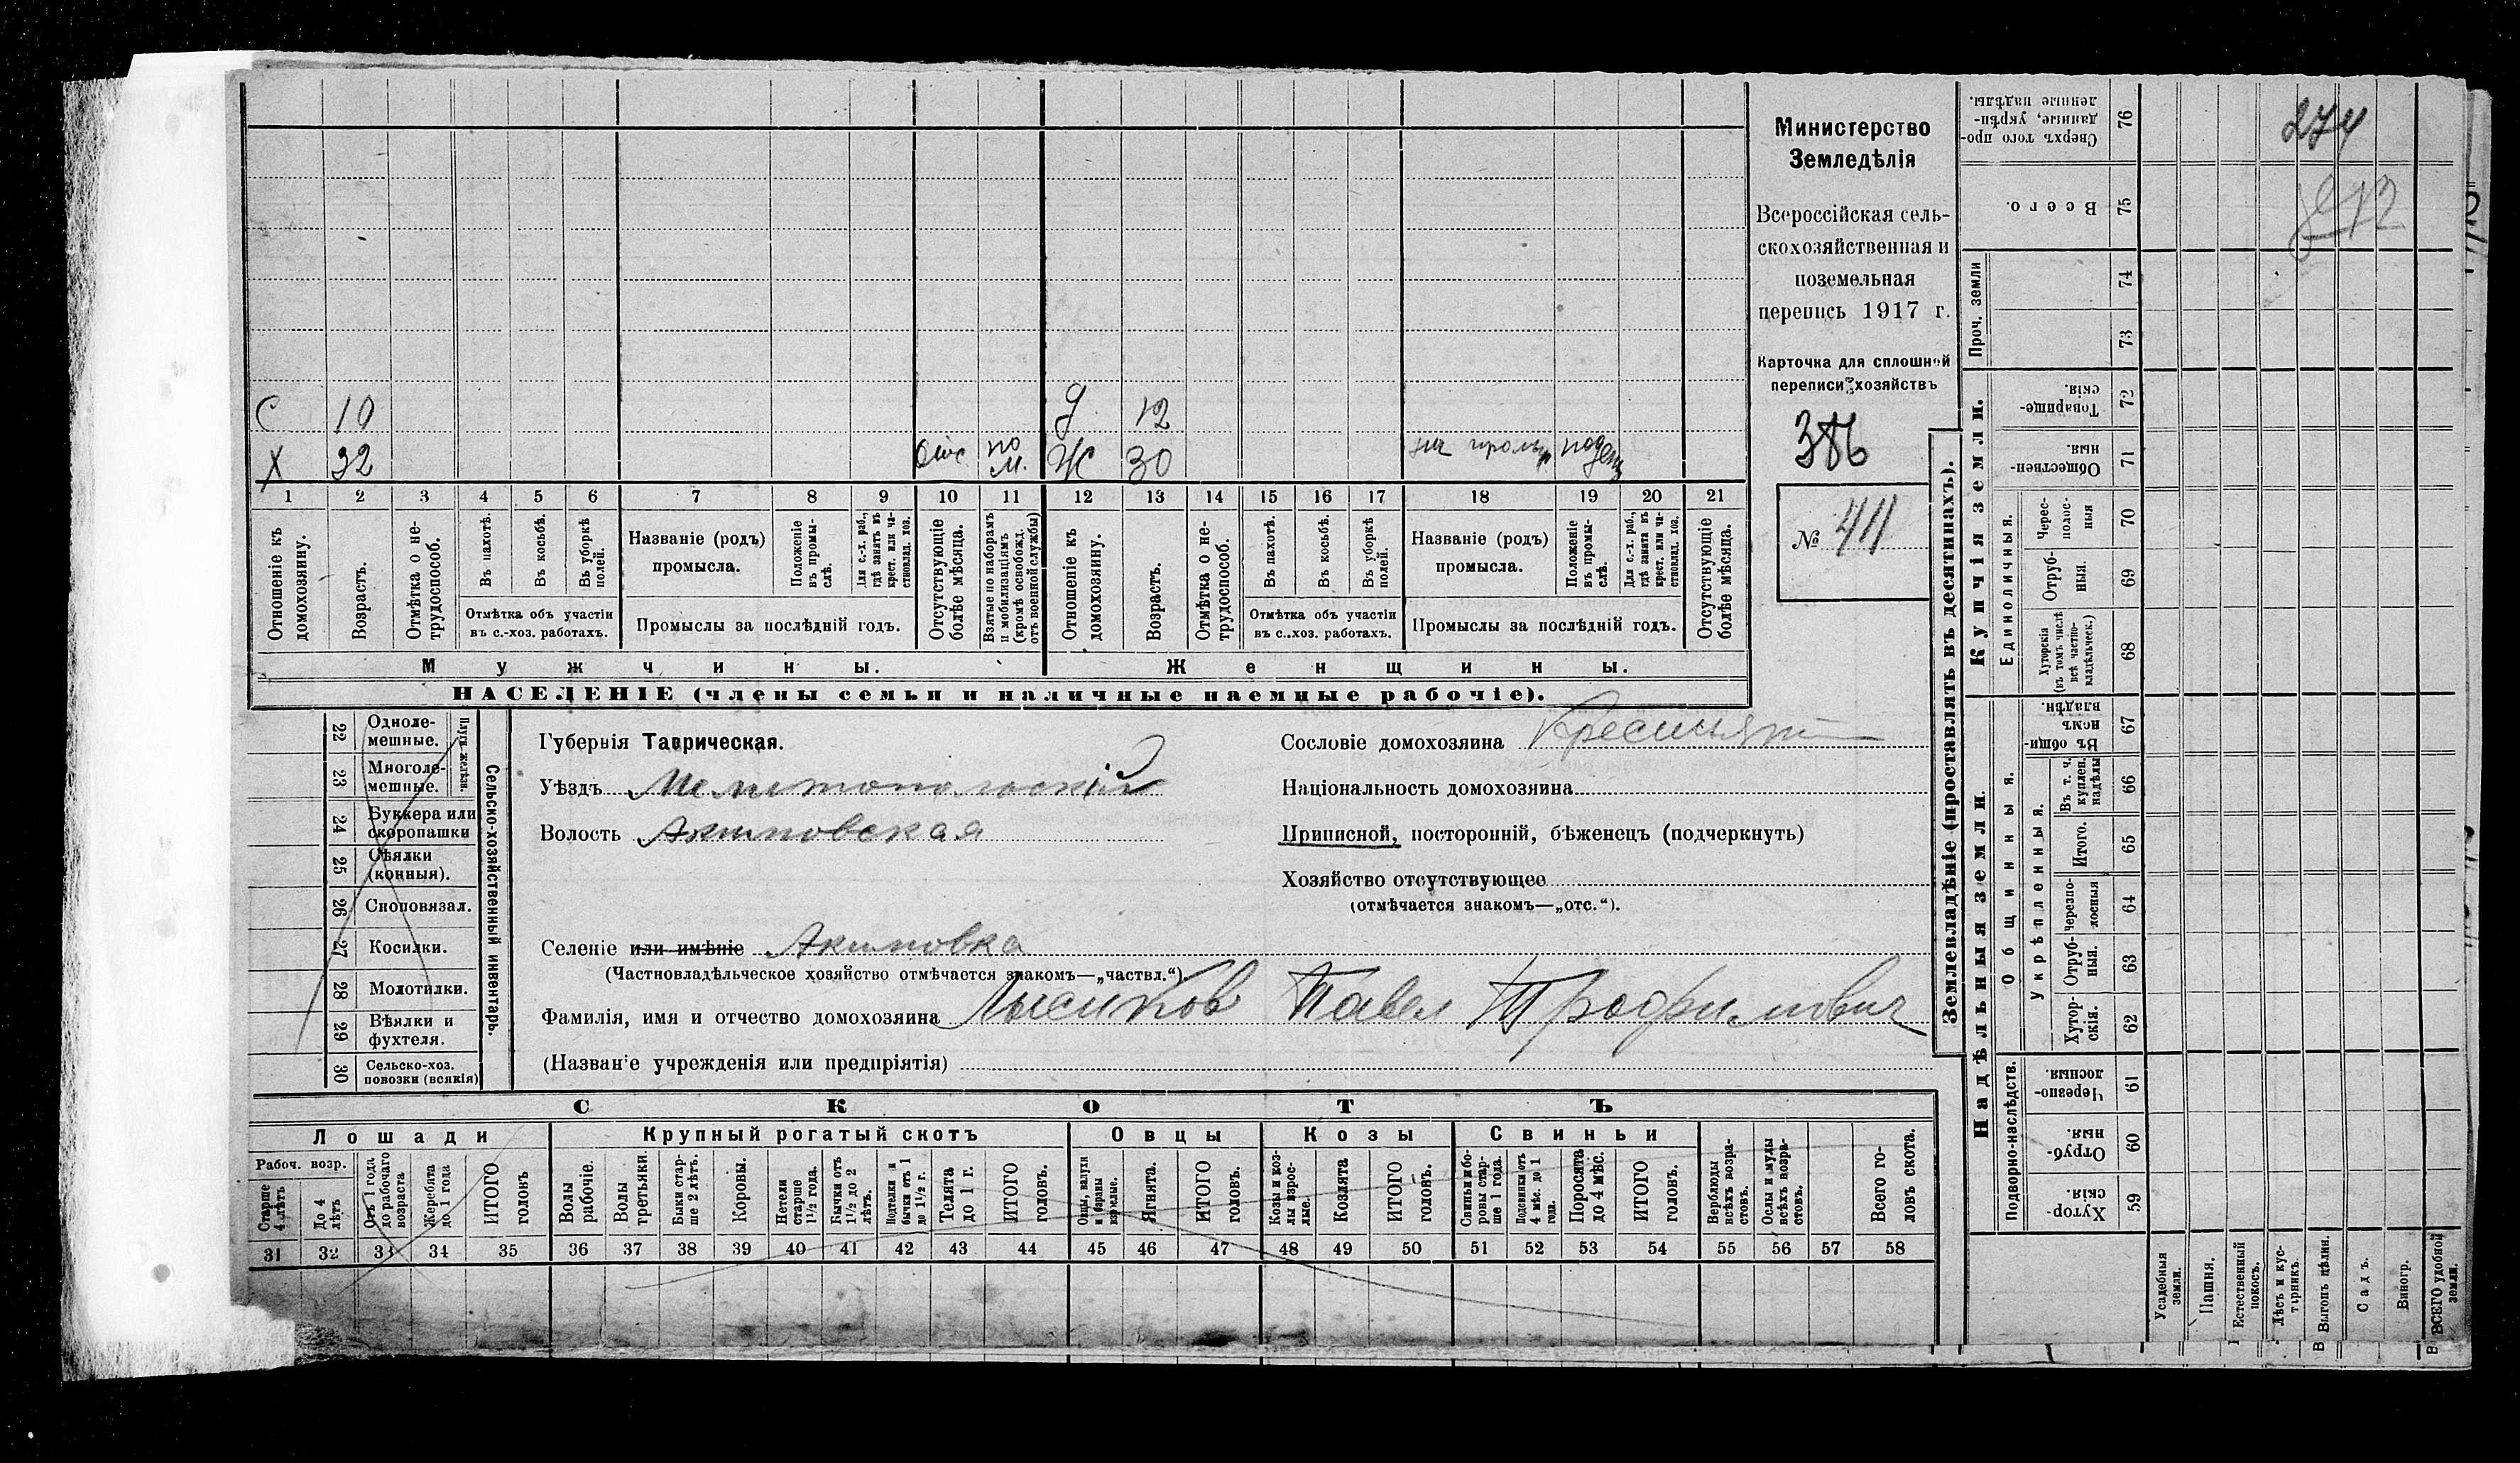 С 10 Д 12
Х 32 отс по м. Ж 30 на пром. поден
1 2 3 4 5 6 7 8 9 10 11 12 13 14 15 16 17 18 19 20 21
Отношеніе къ домохозяину.
Возрастъ.
Отмѣтка о не-трудоспособ.
Въ пахотѣ.
Въ косьбѣ.
Въ уборкѣ полей.
Отмѣтка объ участіи въ с.-хоз. работахъ.
Названіе (родъ) промысла.
Положеніе въ промы-слѣ.
Для с.-х. раб., гдѣ занятъ въ крест. или ча-стновлад. хоз.
Промыслы за послѣдній годъ.
Отсутствующіе болѣе мѣсяца.
Взятые по наборамъ и мобилизаціямъ (кромѣ освобожд. отъ военной службы)
Отношеніе къ домохозяину.
Возрастъ.
Отмѣтка о не-трудоспособ.
Въ пахотѣ.
Въ косьбѣ.
Въ уборкѣ полей.
Отмѣтка объ участіи въ с.-хоз. работахъ.
Названіе (родъ) промысла.
Положеніе въ промы-слѣ.
Для с.-х. раб., гдѣ занята въ крест. или ча-стновлад. хоз.
Промыслы за послѣдній годъ.
Отсутствующіе болѣе мѣсяца.
Мужчины. Женщины.
НАСЕЛЕНІЕ (члены семьи и наличные наемные рабочіе).
Министерство
Земледѣлія
Всероссійская сель-
скохозяйственная и
поземельная
перепись 1917 г.
Карточка для сплошной
переписи хозяйствъ
386
№ 411
Губернія Таврическая.
Уѣздъ Мелитопольскій
Волость Акимовская
Селеніе или имѣніе Акимовка
(Частновладѣльческое хозяйство отмѣчается знакомъ—„частвл.“)
Фамилія, имя и отчество домохозяина Лысиков Павел Трофимович
(Названіе учрежденія или предпріятія)
Сословіе домохозяина Крестьянин
Національность домохозяина
Приписной, посторонній, бѣженецъ (подчеркнуть)
Хозяйство отсутствующее
(отмѣчается знакомъ—„отс.“).
22 Одноле-мешные.
23 Многоле-мешные.
Плуги желѣзн.
24 Буккера или скоропашки
25 Сѣялки (конныя).
26 Сноповязал.
27 Косилки.
28 Молотилки.
29 Вѣялки и фухтеля.
30 Сельско-хоз. повозки (всякія)
Сельско-хозяйственный инвентарь.
СКОТЪ
Лошади Крупный рогатый скотъ Овцы Козы Свиньи
Рабоч. возр.
Старше 4 лѣтъ
До 4 лѣтъ
Отъ 1 года до рабочаго возраста
Жеребята до 1 года
ИТОГО головъ
Волы рабочіе.
Волы третьяки.
Быки стар-ше 2 лѣтъ.
Коровы.
Нетели старше 1½ года.
Бычки отъ 1½ до 2 лѣтъ.
Подтелки и бычки отъ 1 до 1½ г.
Телята до 1 г.
ИТОГО головъ.
Овцы, валухи и бараны взрослые.
Ягнята.
ИТОГО головъ.
Козы и коз-лы взрос-лые.
Козлята
ИТОГО головъ.
Свиньи и бо-ровы стар-ше 1 года.
Подсвинки отъ 4 мѣс. до 1 года.
Поросята до 4 мѣс.
ИТОГО головъ.
Верблюды всѣхъ возра-стовъ.
Ослы и мулы всѣхъ возра-стовъ.
Всего го-ловъ скота.
31 32 33 34 35 36 37 38 39 40 41 42 43 44 45 46 47 48 49 50 51 52 53 54 55 56 57 58
Землевладѣніе (проставлять въ десятинахъ).
Надѣльныя земли. Купчія земли. Проч. земли
Подворно-наслѣдств.
Общинныя.
Укрѣпленныя.
Единоличныя.
Хутор-скія. 59
Отруб-ныя. 60
Черезпо-лосныя 61
Хутор-скія. 62
Отруб-ныя. 63
Черезпо-лосныя 64
Итого. 65
Въ т. ч. куплен. надѣлы 66
Въ общин-номъ владѣн. 67
Хуторскія (въ томъ числѣ всѣ частно-владѣльческ.) 68
Отруб-ныя. 69
Черес-полос-ныя 70
Обществен-ныя 71
Товарище-скія. 72
73
74
Всего. 75
Сверхъ того про-данные, укрѣп-ленные надѣлы. 76
Усадебныя земли.
Пашня.
Естественный покосъ.
Лѣсъ и кус-тарникъ.
Выгонъ цѣлин.
Садъ.
Виногр.
ВСЕГО удобной земли.
274